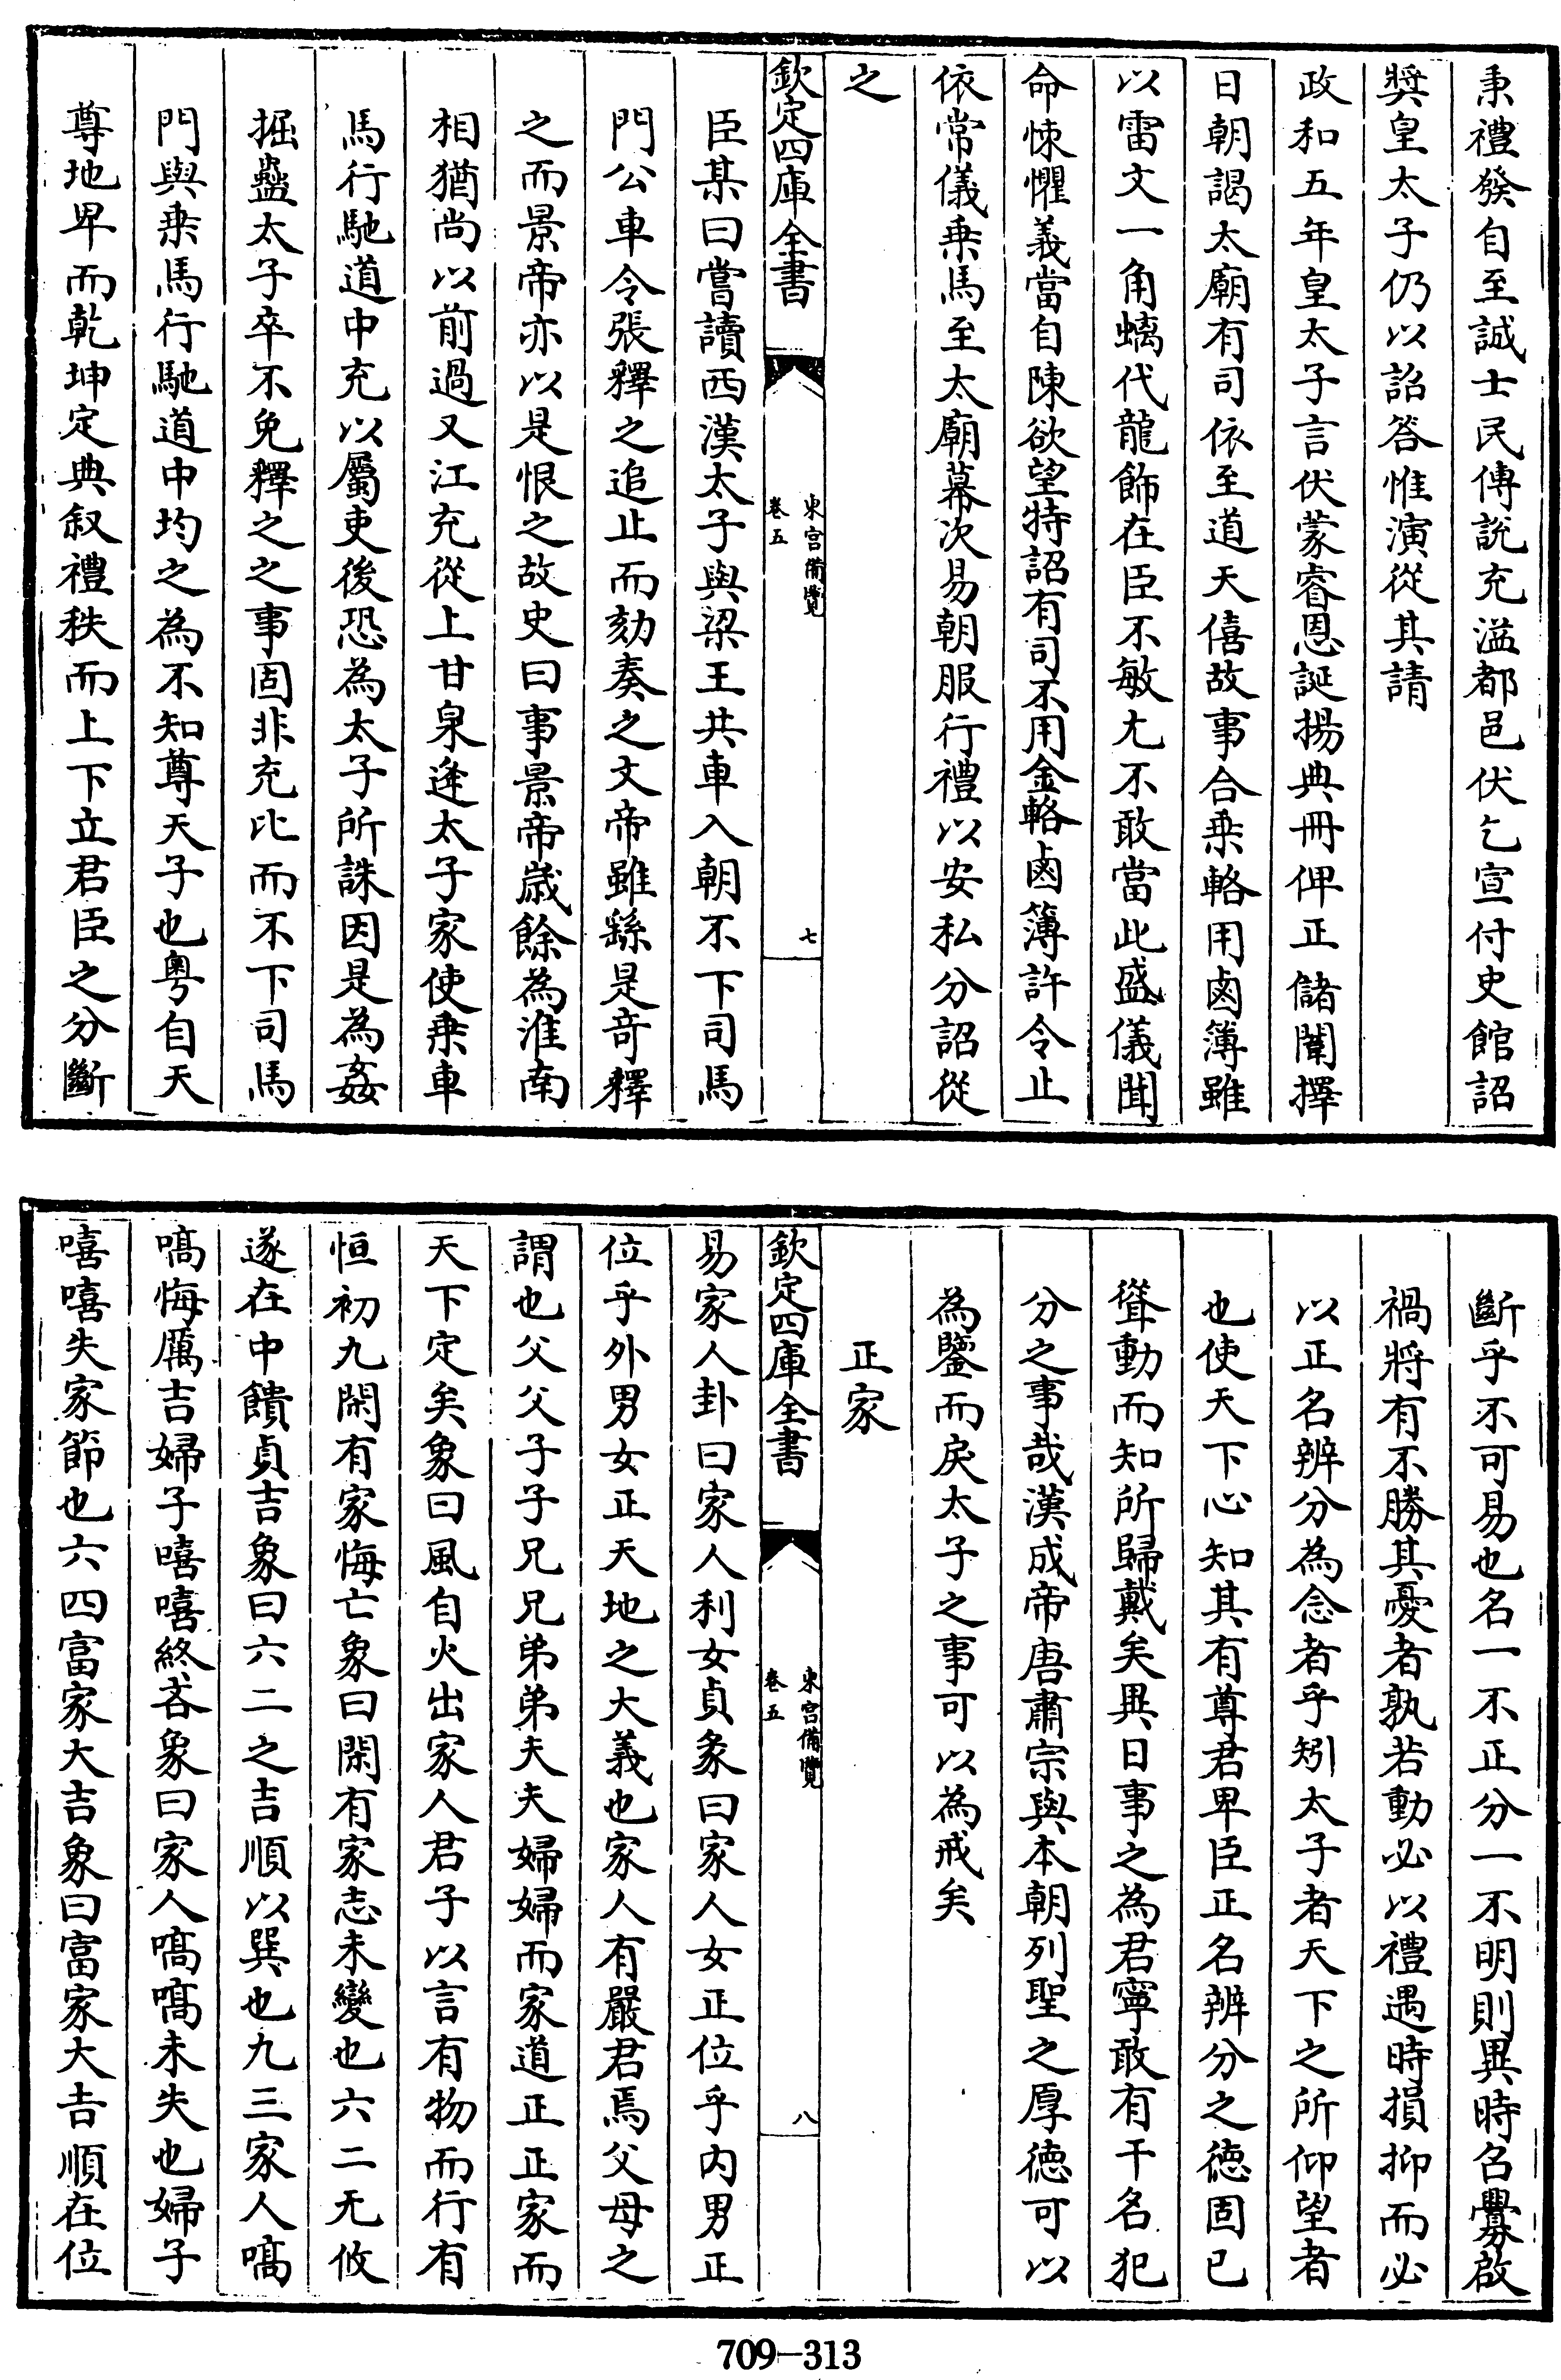 秉禮發自至誠士民傳説充溢都邑伏乞宣付史館詔
獎皇太子仍以詔答惟演從其請
政和五年皇太子言伏蒙睿恩誕揚典冊俾正儲闈擇
日朝謁太廟有司依至道天僖故事合乗輅用鹵簿雖
以雷文一角螭代龍飾在臣不敏尤不敢當此盛儀聞
命悚懼義當自陳欲望特詔有司不用金輅鹵簿許令止
依常儀乗馬至太廟幕次易朝服行禮以安私分詔從
之
欽定四庫全書
東宮備覽
卷五
七
臣某曰嘗讀西漢太子與梁王共車入朝不下司馬
門公車令張釋之追止而劾奏之文帝雖繇是竒釋
之而景帝亦以是恨之故史曰事景帝歲餘為淮南
相猶尚以前過又江充從上甘泉逢太子家使乗車
馬行馳道中充以屬吏後恐為太子所誅因是為姦
掘蠱太子卒不免釋之之事固非充比而不下司馬
門與乗馬行馳道中均之為不知尊天子也粤自天
尊地卑而乾坤定典叙禮秩而上下立君臣之分斷
斷乎不可易也名一不正分一不明則異時名釁啟
禍將有不勝其憂者孰若動必以禮遇時損抑而必
以正名辨分為念者乎矧太子者天下之所仰望者
也使天下心知其有尊君卑臣正名辨分之徳固已
聳動而知所歸戴矣異日事之為君寧敢有干名犯
分之事哉漢成帝唐肅宗與本朝列聖之厚徳可以
為鑒而戾太子之事可以為戒矣
正家
欽定四庫全書
東宮備覽
卷五
八
易家人卦曰家人利女貞彖曰家人女正位乎内男正
位乎外男女正天地之大義也家人有嚴君焉父母之
謂也父父子子兄兄弟弟夫夫婦婦而家道正正家而
天下定矣象曰風自火出家人君子以言有物而行有
恒初九閑有家悔亡象曰閑有家志未變也六二无攸
遂在中饋貞吉象曰六二之吉順以巽也九三家人嗃
嗃悔厲吉婦子嘻嘻終吝象曰家人嗃嗃未失也婦子
嘻嘻失家節也六四富家大吉象曰富家大吉順在位
709-313